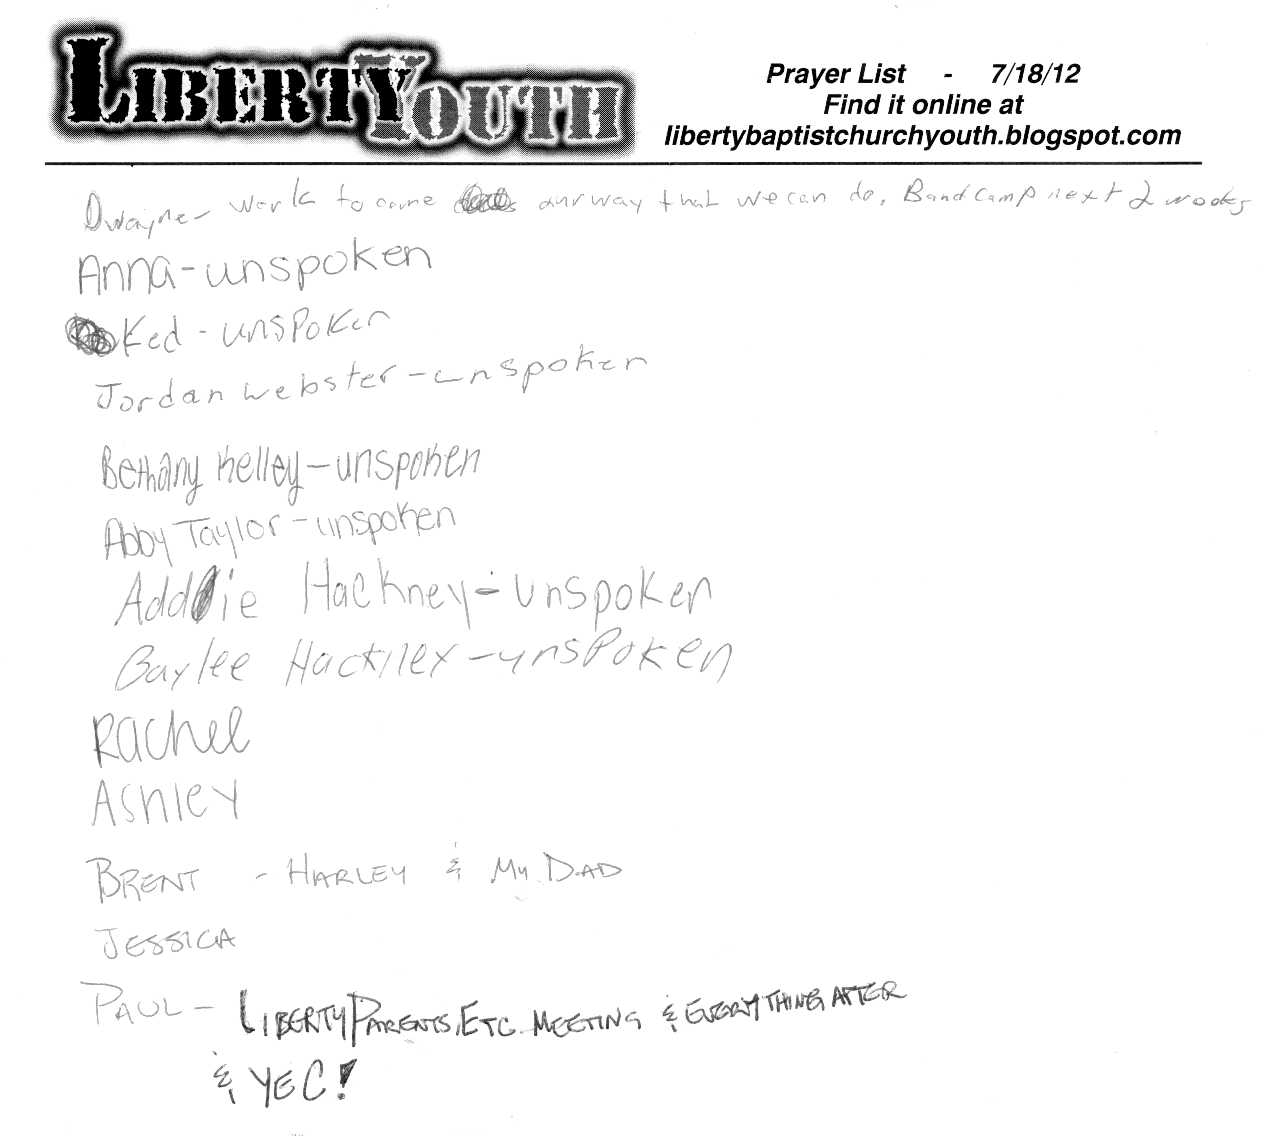 LIBERTY YOUTH
Prayer List - 7/18/12
Find it online at
libertybaptistchurchyouth.blogspot.com
Dwayne- work to come our way that we can do, Band Camp next 2 weeks
Anna-unspoken
Ked - unspoken
Jordan Webster-unspoken
Bethany Kelley-unspoken
Abby Taylor-unspoken
Addie Hackney-unspoken
Baylee Hackney-unspoken
Rachel
Ashley
BRENT - HARLEY & MY DAD
JESSICA
PAUL - LIBERTY PARENTS, ETC. MEETING & EVERYTHING AFTER
& YEC!